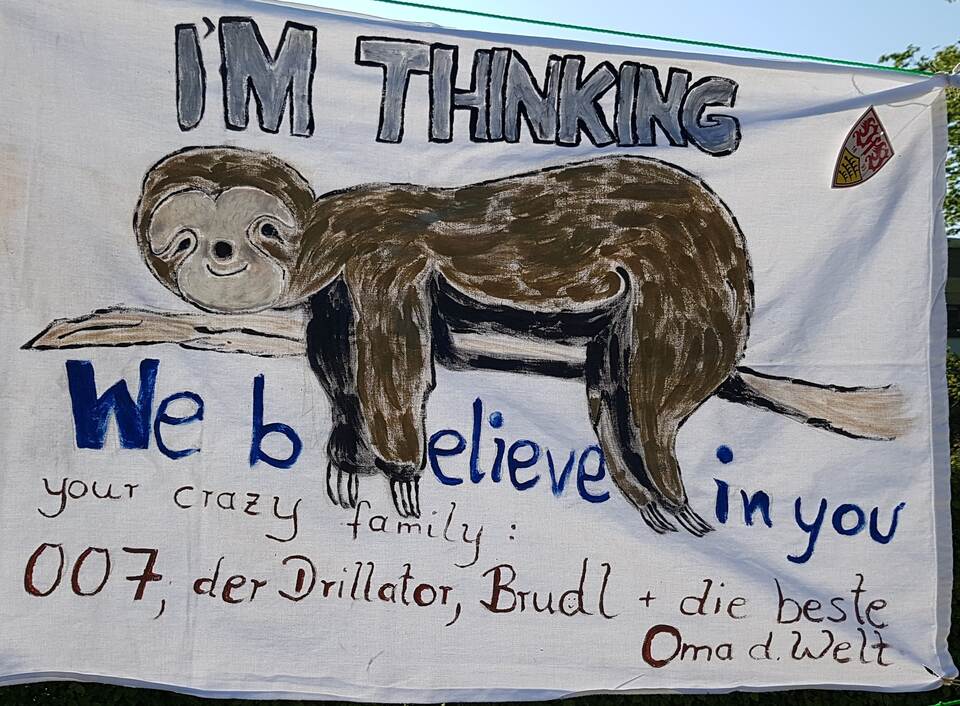 I'M THINKING
We believe in you
your crazy family:
007, der Drillator, Brudl + die beste
Oma d. Welt